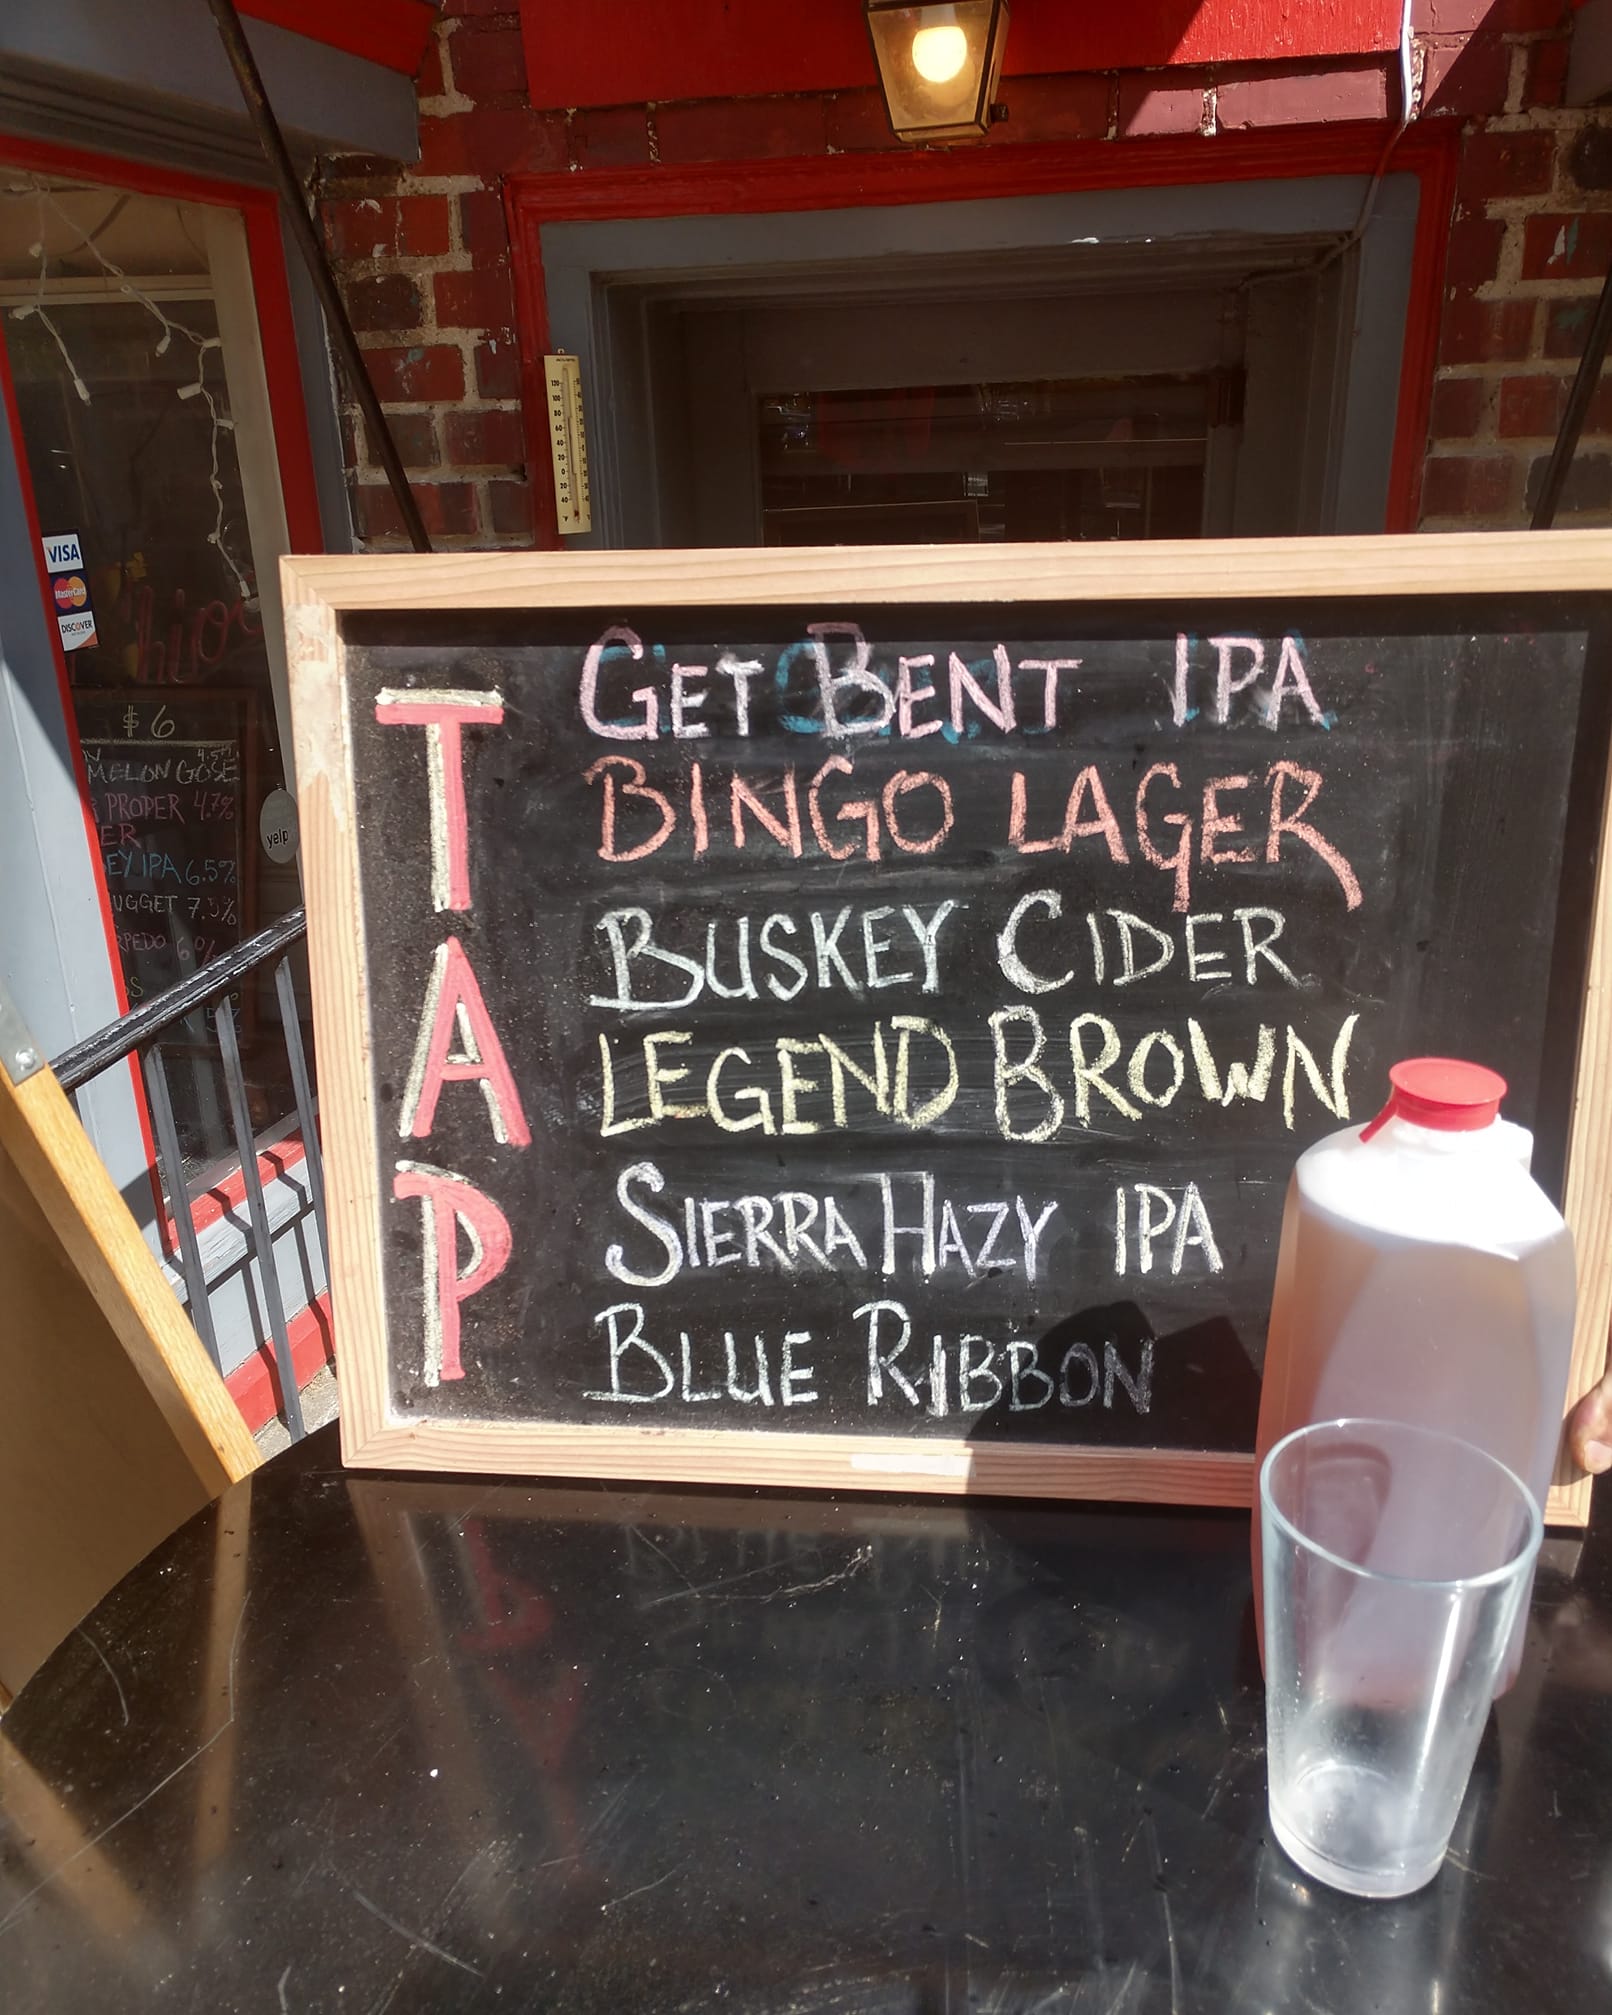 VISA
MasterCard
DISCOVER
$6
MELON GOSE 4.5%
PROPER 4.7%
ER
EY IPA 6.5%
UGGET 7.5%
RPEDO 6%
yelp
TAP
GET BENT IPA
BINGO LAGER
BUSKEY CIDER
LEGEND BROWN
SIERRA HAZY IPA
BLUE RIBBON